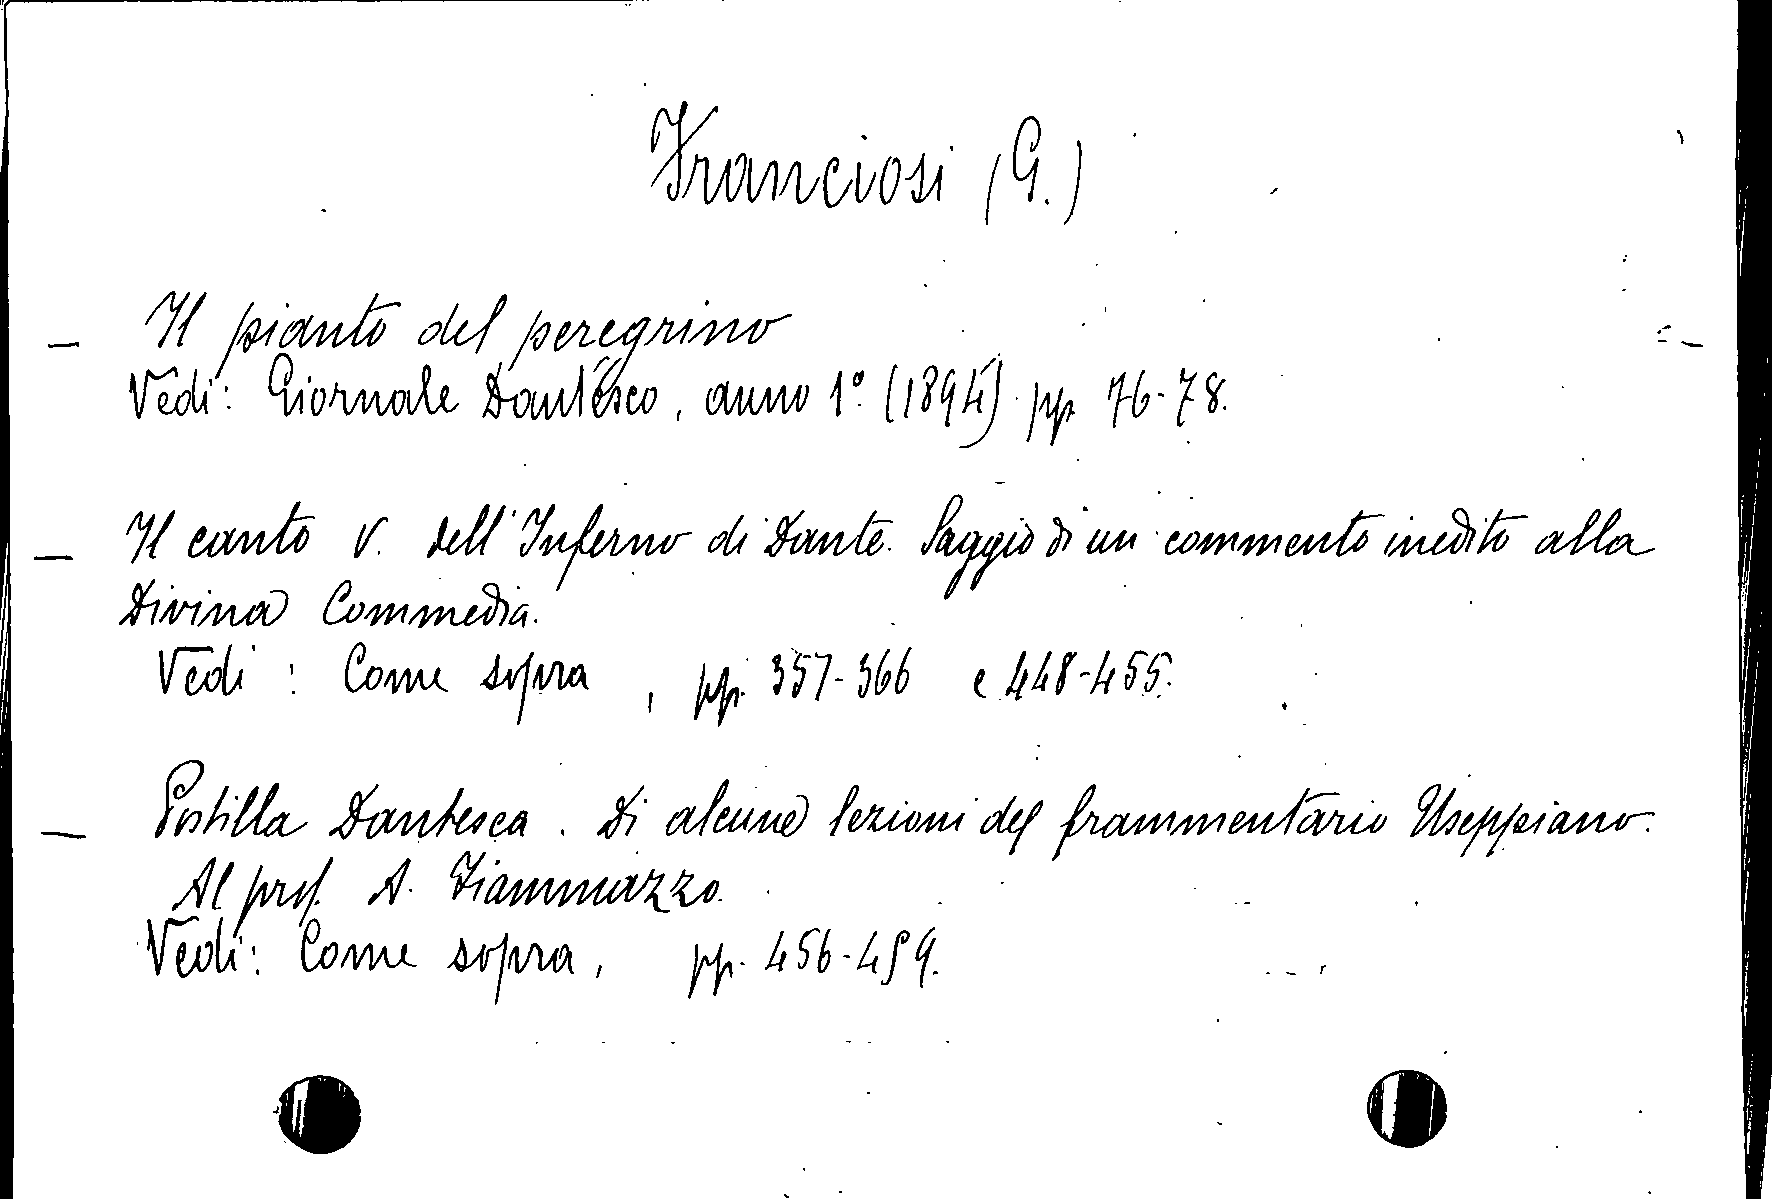 Franciosi (G.)
— Il pianto del peregrino
Vedi: Giornale Dantesco, anno 1º (1894) pp. 76-78.
— Il canto V. dell'Inferno di Dante. Saggio di un commento inedito alla
Divina Commedia.
Vedi: Come sopra, pp. 357-366 e 448-455.
— Postilla Dantesca. Di alcune lezioni del frammentario Useppiano.
Al prof. A. Fiammazzo.
Vedi: Come sopra, pp. 456-459.